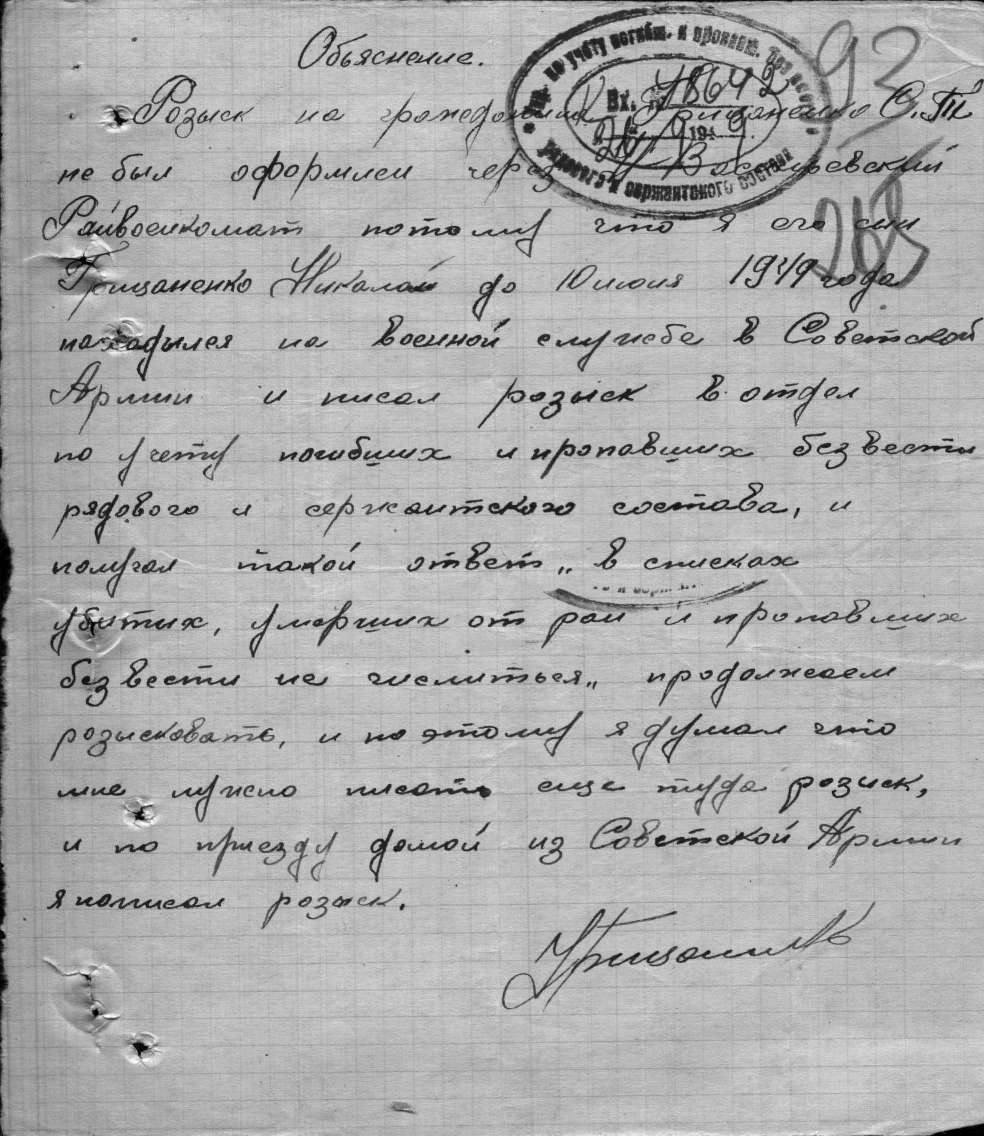 Объяснение.
Розыск на гражданина Грицаненко С.
не был оформлен через Васильевский
Райвоенкомат потому что я его сын
Грицаненко Николай до 10 июня 1949 года
находылся на военной службе в Советской
Армии и писал розыск в отдел
по учету погибших и пропавших без вести
рядового и сержантского состава, и
получал такой ответ „ в списках
убитих, умерших от ран и пропавших
без вести не числиться „ продолжаем
розысковать, и поэтому я думал что
мне нужно писать еще туда розиск,
и по приезду домой из Советской Армии
я написал розыск.
по учёту погибш. и пропавш. без вести
Вх. № 48642
194 9
рядового и сержантского состава
93